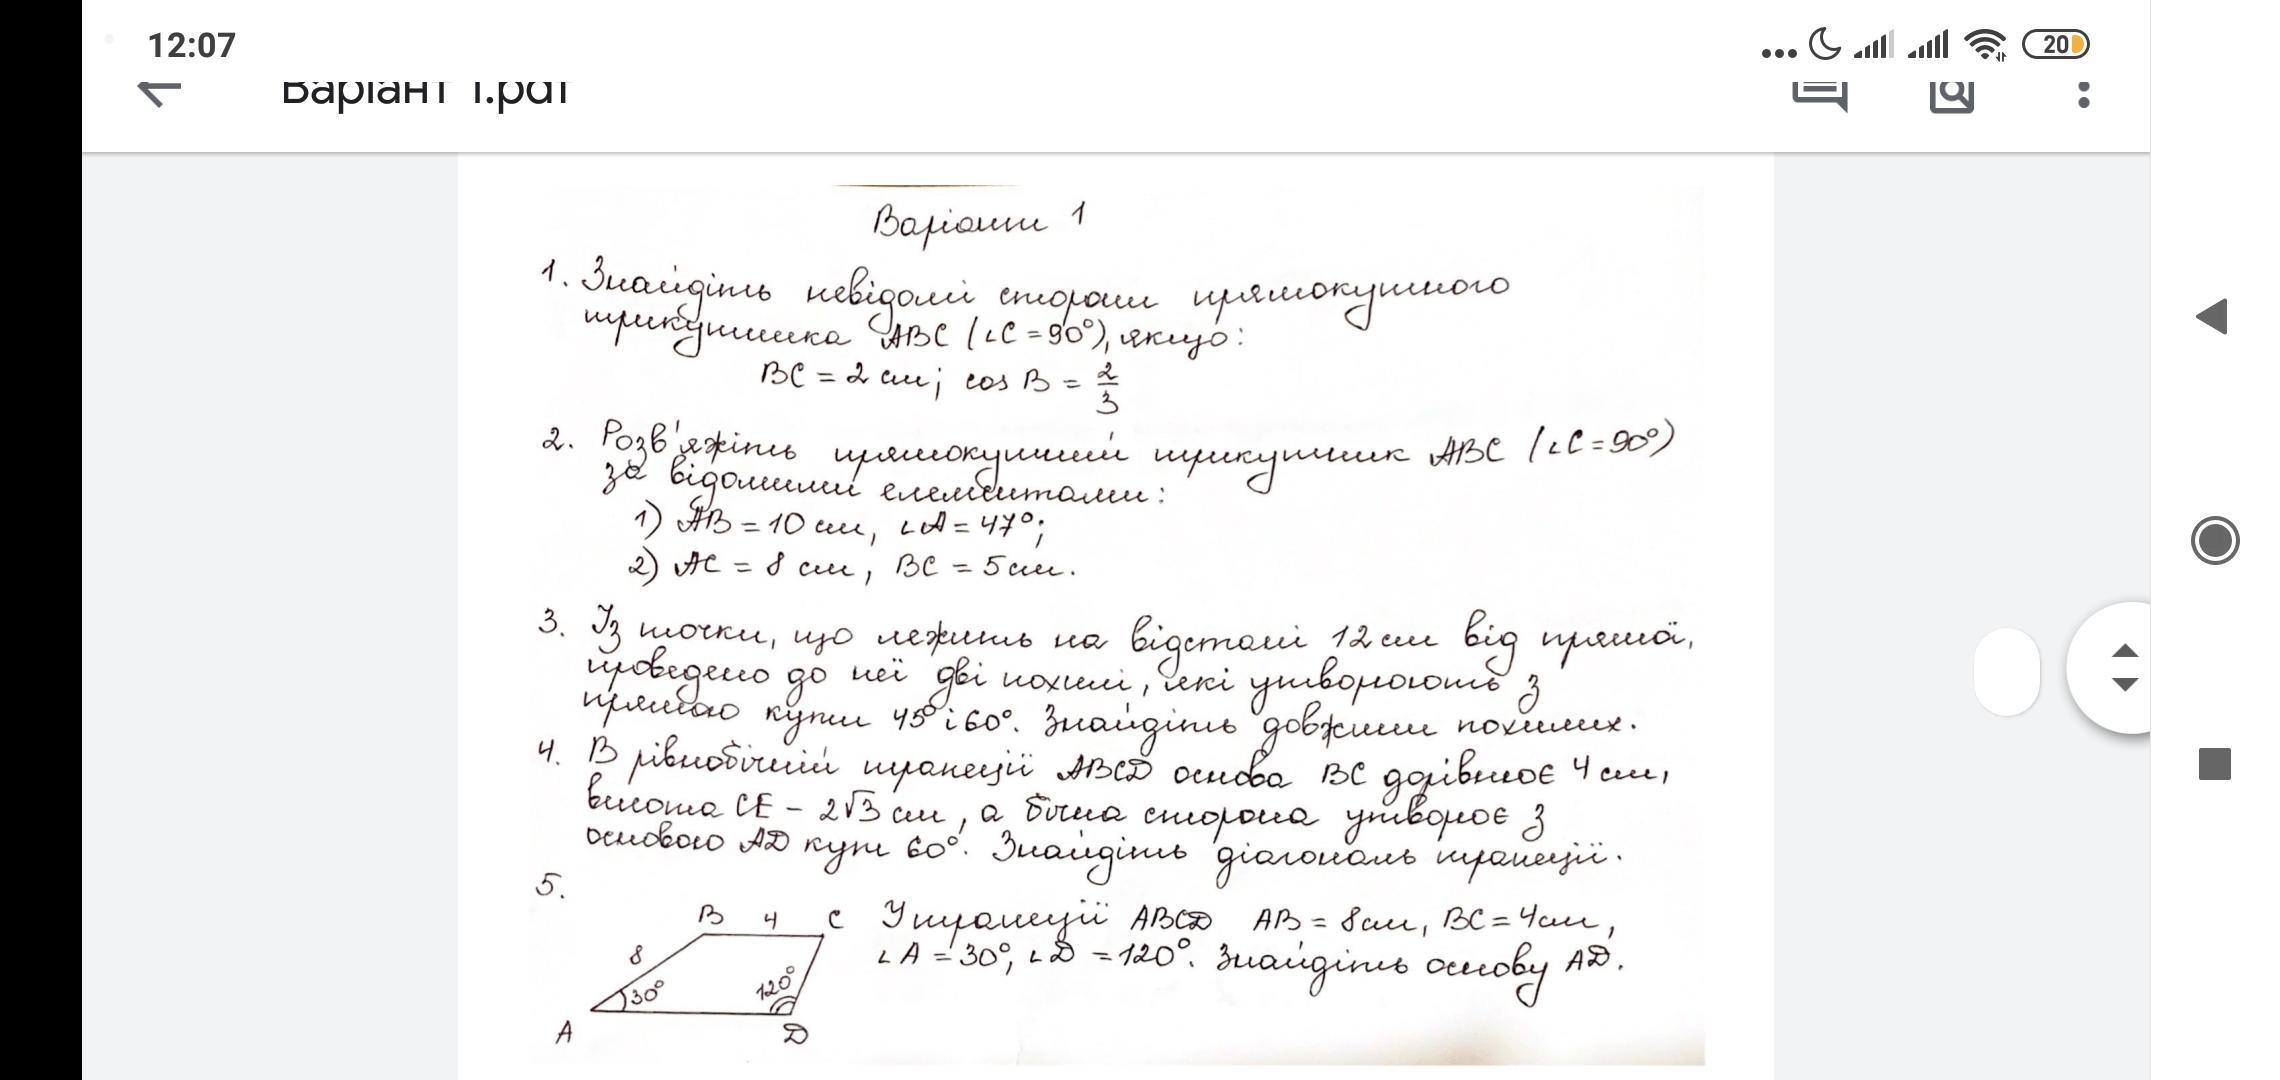 12:07
20
Варіант 1.pdf
Варіант 1
1. Знайдіть невідомі сторони прямокутного
трикутника ABC (∠C = 90°), якщо:
BC = 2 см; cos B = 2/3
2. Розв'яжіть прямокутний трикутник ABC (∠C = 90°)
за відомими елементами:
1) AB = 10 см, ∠A = 47°;
2) AC = 8 см, BC = 5 см.
3. Із точки, що лежить на відстані 12 см від прямої,
проведено до неї дві похилі, які утворюють з
прямою кути 45° і 60°. Знайдіть довжини похилих.
4. В рівнобічній трапеції ABCD основа BC дорівнює 4 см,
висота CE - 2√3 см, а бічна сторона утворює з
основою AD кут 60°. Знайдіть діагональ трапеції.
5.
B 4 C У трапеції ABCD AB = 8 см, BC = 4 см,
8 ∠A = 30°, ∠D = 120°. Знайдіть основу AD.
30° 120°
A D